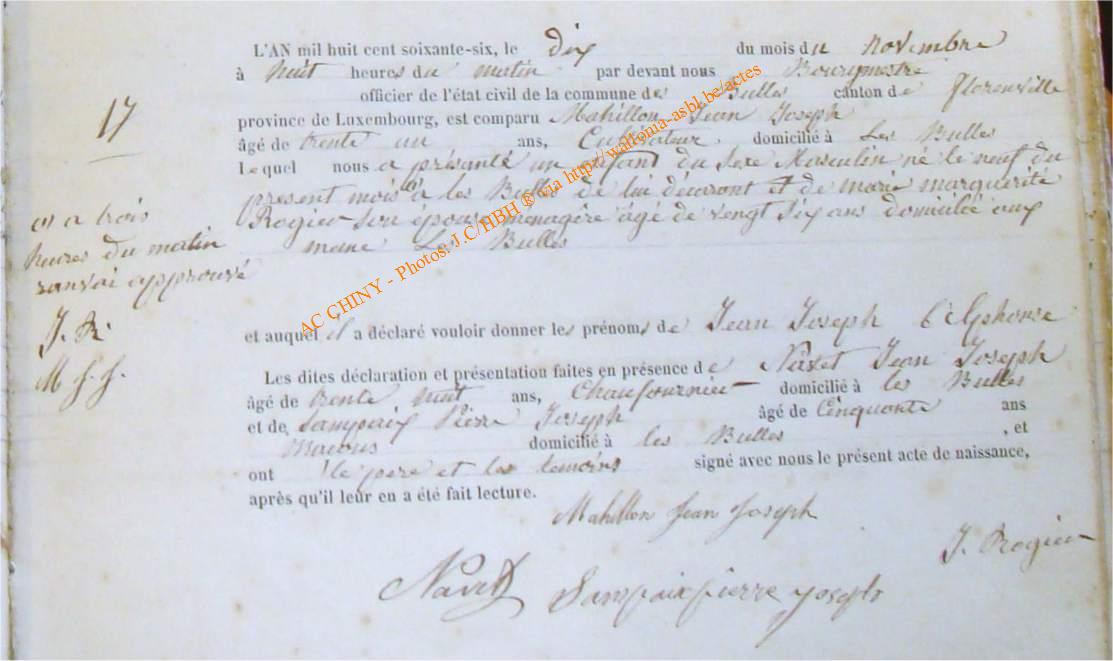 L'AN mil huit cent soixante-six, le dix du mois du novembre
à huit heures du matin par devant nous Bourgmestre
officier de l'état civil de la commune des Bulles canton de Florenville
province de Luxembourg, est comparu Mahillon Jean Joseph
âgé de trente un ans, Cultivateur domicilié à Les Bulles
Lequel nous a présanté un enfant du sexe Masculin né le neuf du
17
present mois à les Bulles de lui décaront et de marie marguerite
Rogier son épouse menagère âgé de vengt six ans domicilié aux
mème Les Bulles
a trois
heures du matin
ranvai approuvé
J. R.
M J. J.
et auquel il a déclaré vouloir donner les prénoms de Jean Joseph Alphonse
Les dites déclaration et présentation faites en présence de Navet Jean Joseph
âgé de trente huit ans, Chaufournier domicilié à les Bulles
et de Sampaix Pierre Joseph âgé de Cinquante ans
Macons domicilié à les Bulles , et
ont le pere et les temoins signé avec nous le présent acte de naissance,
après qu'il leur en a été fait lecture.
Mahillon Jean Joseph
J. Rogier
Navet Sampaix pierre joseph
AC CHINY - Photos: J.C/HBH ® via http://wallonia-asbl.be/actes